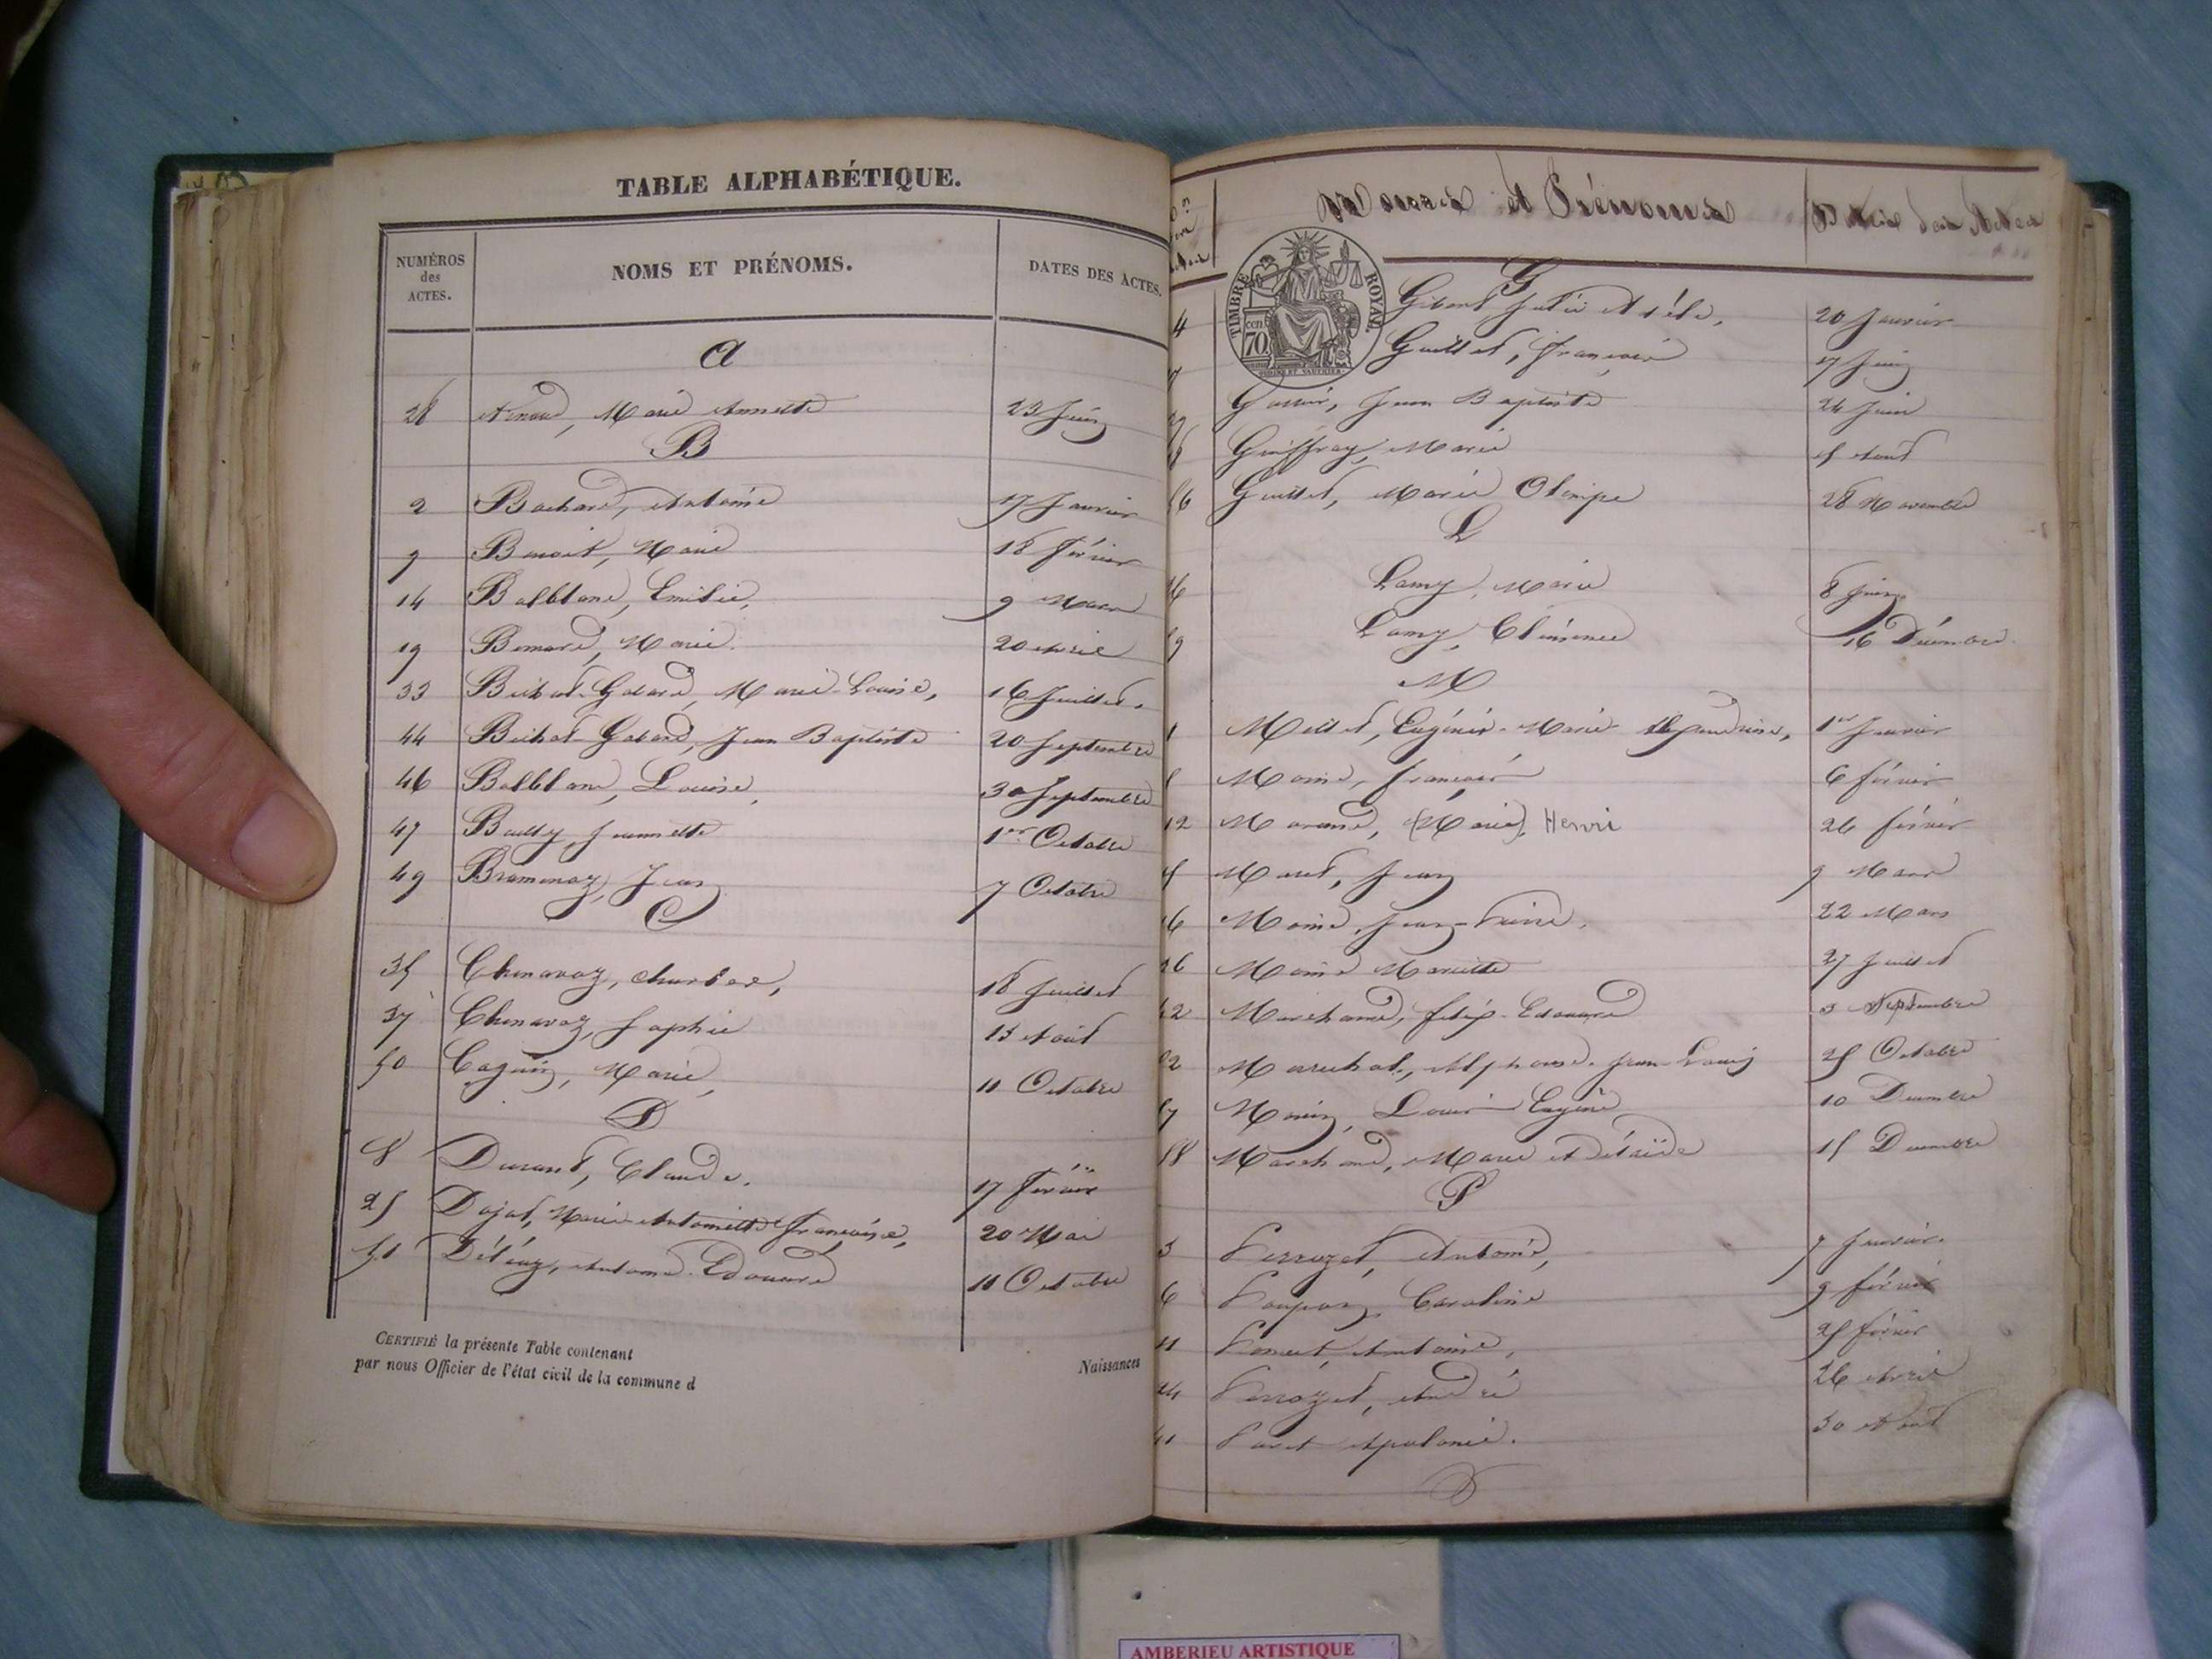 TABLE ALPHABÉTIQUE.
NUMÉROS des ACTES.
NOMS ET PRÉNOMS.
DATES DES ACTES.
A
28 Arnaud, Marie Annette 23 Juin
B
2 Bachard, Antoine 17 Janvier
9 Benoit, Marie 18 Février
14 Balblanc, Emilie, 9 Mars
19 Bernard, Marie 20 Avril
33 Bichat-Gobard, Marie-Louise, 16 Juillet.
44 Bichat-Gobard, Jean Baptiste 20 Septembre
46 Balblanc, Louise, 30 Septembre
47 Bailly, Jeannette 1er Octobre
49 Bramonoz, Jean 7 Octobre
C
35 Chenavaz, Charles, 18 Juillet
37 Chenavaz, Sophie 13 Août
50 Cagnin, Marie, 11 Octobre
D
8 Durand, Claude. 17 Février
25 Dojat, Marie-Antoinette Françoise, 20 Mai
51 Antoine-Edouard 11 Octobre
CERTIFIÉ la présente Table contenant
Naissances
par nous Officier de l'état civil de la commune d
Noms et Prénoms
Dates des Actes
TIMBRE ROYAL.
70 cen
G
4 Julie Adèle, 20 Janvier
Guillet, François 17 Juin
Jean Baptiste 24 Juin
Guiffray, Marie 5 Août
56 Guillet, Marie Olimpe 28 Novembre
L
Lamy, Marie 8 Juin
Lamy, Clémence 16 Décembre
M
1 Millet, Eugénie-Marie 1er Janvier
Moine, François 6 février
12 Morand, (Marie), Henri 26 février
Morel, Jean 9 Mars
16 Moine, Jean-Pierre, 22 Mars
36 Moine Mariette 27 Juillet
42 Marchand, félix-Edouard 3 Septembre
52 Marechal, Alphonse-Jean-Louis 25 Octobre
57 Morin, Louis-Eugène 10 Décembre
58 Marchand, Marie Adélaïde 15 Décembre
P
3 Perrozet, Antoine, 7 Janvier.
6 Caroline 9 février
11 Antoine, 25 février
24 Perrozet, André 26 Avril
41 Apolonie. 30 Août
AMBERIEU ARTISTIQUE